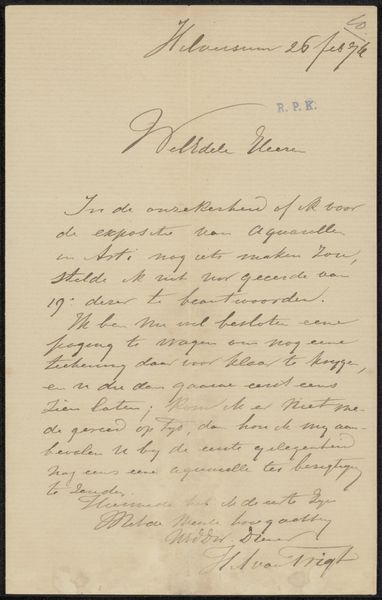 Hilversum 26 feb 76
R.P.K.
WelEdele Heeren
In de onzekerheid of ik voor
de expositie van Aquarellen
in Arti nog iets maken zou,
stelde ik uit uw geeerde van
19e dezer te beantwoorden.
Ik ben nu wel besloten eene
poging te wagen om nog eene
teekening daar voor klaar te krijgen,
en u die dan gaarne eerst eens
zien laten; kom ik er niet me-
de gereed op tijd, dan hou ik mij aan-
bevolen u bij de eerste gelegenheid
nog eens eene aquarelle ter bezigtiging
te zenden.
Hiermede heb ik de eer te zijn
Met de Meeste hoogachting
UwEdw. Dienaar
H. A. van Trigt